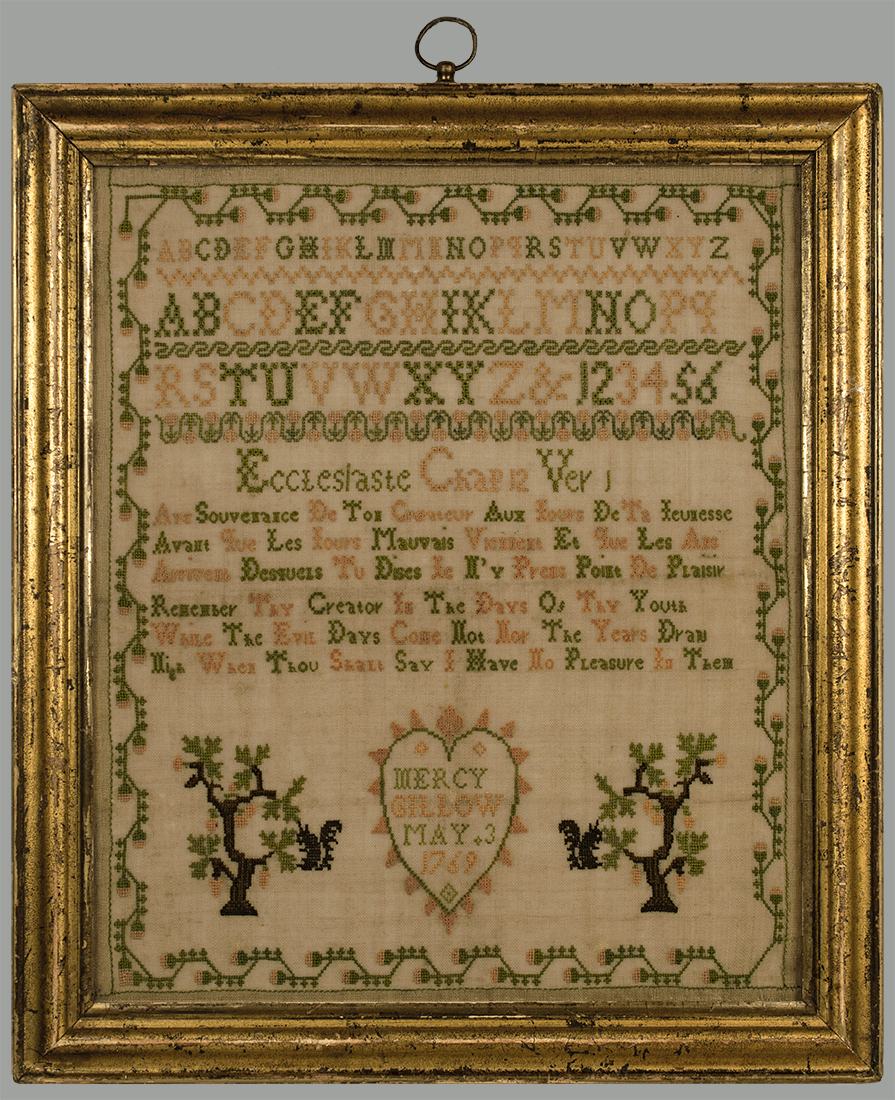 ABCDEFGHIKLMMNNOPQRSTUVWXYZ
ABCDEFGHIKLMNOPQ
RSTUVWXYZ&123456
Ecclesiaste Chap 12 Ver 1
Aye Souvenance De Ton Createur Aux Iours De Ta Ieunesse
Avant Que Les Iours Mauvais Viennent Et Que Les Ans
Arrivent Desquels Tu Dises Ie N'y Prens Point De Plaisir
Remember Thy Creator In The Days Of Thy Youth
While The Evil Days Come Not Nor The Years Draw
Nigh When Thou Shalt Say I Have No Pleasure In Them
MERCY
GILLOW
MAY.3
1769